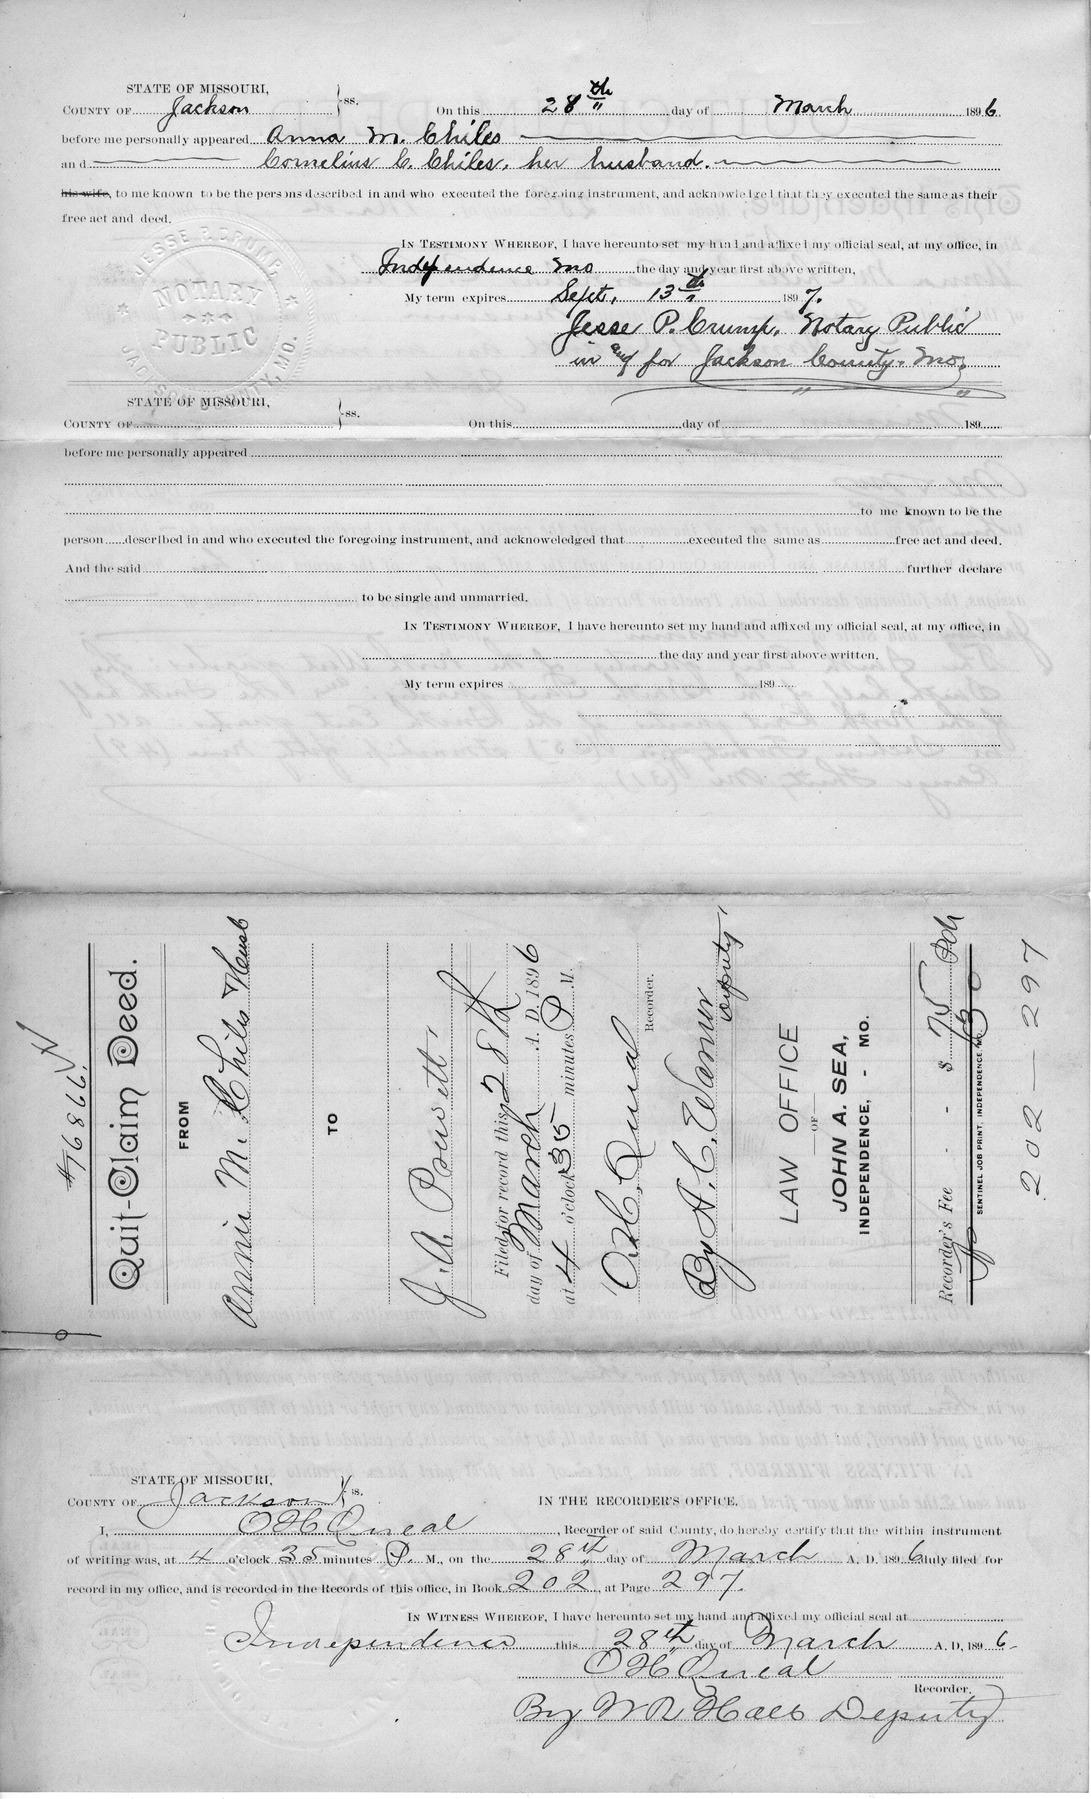 STATE OF MISSOURI,
COUNTY OF Jackson } ss. On this 28th day of March 1896
before me personally appeared Anna M. Chiles
and Cornelius C. Chiles, her husband.
his wife, to me known to be the persons described in and who executed the foregoing instrument, and acknowledged that they executed the same as their
free act and deed.
IN TESTIMONY WHEREOF, I have hereunto set my hand and affixed my official seal, at my office, in
Independence Mo the day and year first above written,
My term expires Sept. 13th 1897.
Jesse P. Crump, Notary Public
in and for Jackson County, Mo,
JESSE P. CRUMP,
NOTARY
PUBLIC
JACKSON COUNTY, MO.
STATE OF MISSOURI,
COUNTY OF } ss. On this day of 189
before me personally appeared
to me known to be the
person described in and who executed the foregoing instrument, and acknoweledged that executed the same as free act and deed.
And the said further declare
to be single and unmarried.
IN TESTIMONY WHEREOF, I have hereunto set my hand and affixed my official seal, at my office, in
the day and year first above written.
My term expires 189
#76866
Quit-Claim Deed.
FROM
Annie M. Chiles & Husb
TO
J. A. Prewitt
Filed for record this 28th
day of March A. D. 1896
at 4 o'clock 35 minutes P M.
O. H. Quial
Recorder.
By A. C. Warner
Deputy
LAW OFFICE
OF
JOHN A. SEA,
INDEPENDENCE, - MO.
Recorder's Fee - - $ 75 Pd
SENTINEL JOB PRINT, INDEPENDENCE MO.
202-297
STATE OF MISSOURI,
COUNTY OF Jackson } ss. IN THE RECORDER'S OFFICE.
I, O H Quial, Recorder of said County, do hereby certify that the within instrument
of writing was, at 4 o'clock 35 minutes P. M., on the 28th day of March A. D. 1896 duly filed for
record in my office, and is recorded in the Records of this office, in Book 202, at Page 297.
IN WITNESS WHEREOF, I have hereunto set my hand and affixed my official seal at
Independence this 28th day of March A. D. 1896.
O H Quial
Recorder.
By W R Hall Deputy